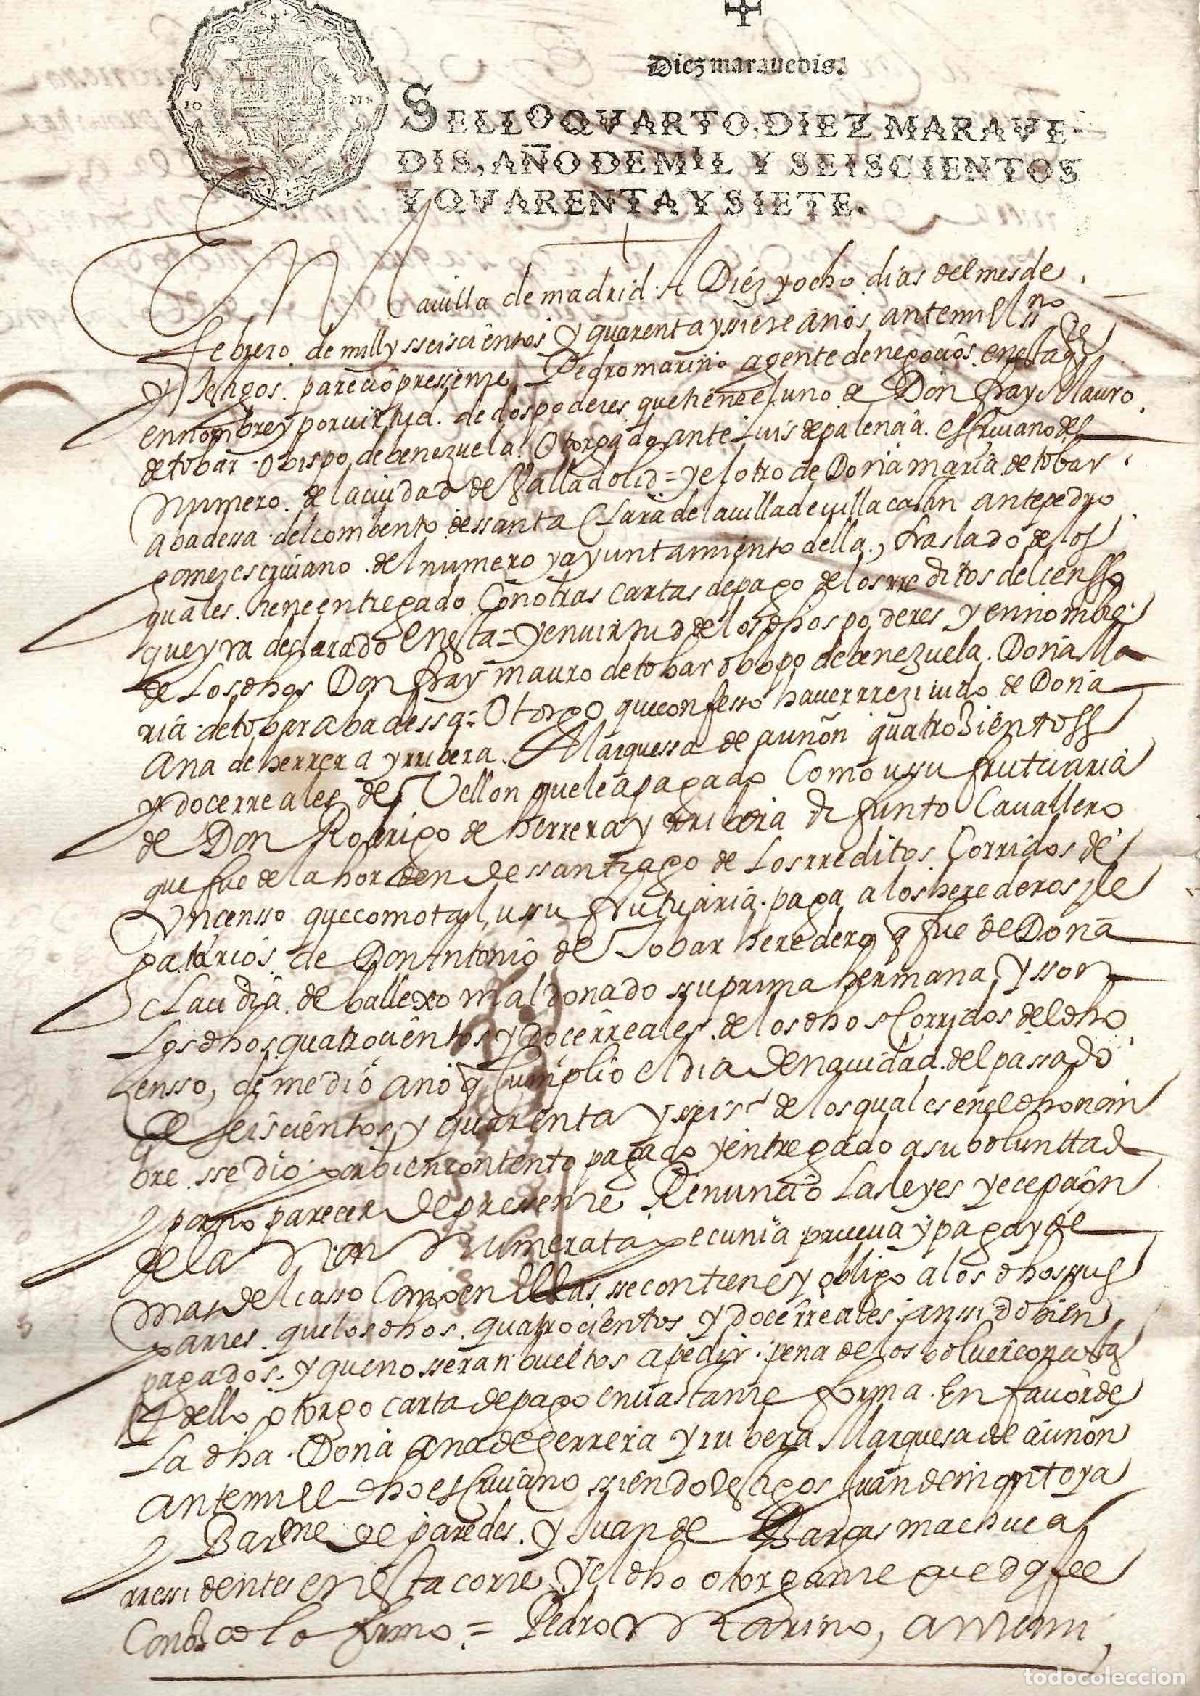 Diez maravedis.
SELLO QVARTO, DIEZ MARAVE-
DIS, AÑO DE MIL Y SEISCIENTOS
Y QVARENTA Y SIETE.
En la villa de madrid A Diez yocho dias del mes de
febrero de mill y sseiscientos y quarenta y ssiete años, ante mi el ssno
y testigos parecio pressente Pedro marino agente de negocios en esta corte
en nombre y por virtud de dos poderes que tiene el uno de Don fray Mauro
de tobar obispo de benezuela otorgado ante Luis de palencia escriuano del
numero de la ciudad de Valladolid = y el otro de Doña maria de tobar
abadesa del combento de ssanta Clara de la uilla de uillacastin ante pedro
gomez escriuano del numero y ayuntamiento della, traslado de los
quales tiene entregado con otras cartas de pago de los rreditos del censso
que yra declarado en esta = y en uirtud de los dhos poderes y en nombre
de los dhos Don fray mauro de tobar obispo de benezuela. Doña Ma
ria de tobar abadessa = Otorgo que confesso hauer rreziuido de Doña
Ana de herrera y rribera. Marquessa de auñon quatrozientoss
y doce rreales de Vellon que le a pagado como ussu frutuaria
de Don Rodrigo de herrera y rribera difunto Cauallero
que fue de la horden de ssantiago de Los rreditos Corridos de
un censso que como tal ussu frutuaria paga a los herederos le
patarios de Don Antonio de Tobar heredero q fue de Doña
claudia de ballexo maldonado su prima hermana, y sson
Los dhos quatrocientos y doce rreales de los dhos Corridos del dho
Censso, de medio año q Cumplio el dia de nauidad del passado
de seiscientos y quarenta y sseis, de los quales en el dho nom
bre sse dio por bien contento pagado y entregado a su boluntad
y por no parecer de pressente Renuncio Las leyes y ecepcion
de la Non Numerata pecunia prueua y paga y de
mas del casso Como en ellas se contiene y obligo a los dhos sus
partes que los dhos quatrocientos y doce rreales an ssido bien
pagados y que no sseran bueltos a pedir pena de los bolver con costas
y dello otorgo carta de pago en uastante forma En fauor de
La dha Doña ana de herrera y rribera Marquesa de auñon
ante mi el dho escriuano siendo testigos Juan de montoya
Barme de paredes y Juan de Bargas machuca
rressidentes en esta corte y el dho otorgante que doy fee
Conozco lo firmo = Pedro Marino, ante mi,
todocoleccion